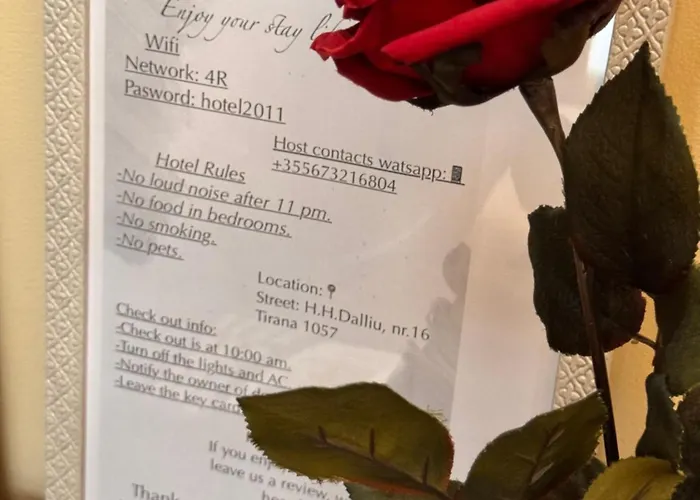 Enjoy your stay
Wifi
Network: 4R
Pasword: hotel2011
Host contacts watsapp:
+355673216804
Hotel Rules
-No loud noise after 11 pm.
-No food in bedrooms.
-No smoking.
-No pets.
Location:
Street: H.H.Dalliu, nr.16
Tirana 1057
Check out info:
-Check out is at 10:00 am.
-Turn off the lights and AC
-Notify the owner of
-Leave the key card
If you
leave us a review,
Thank